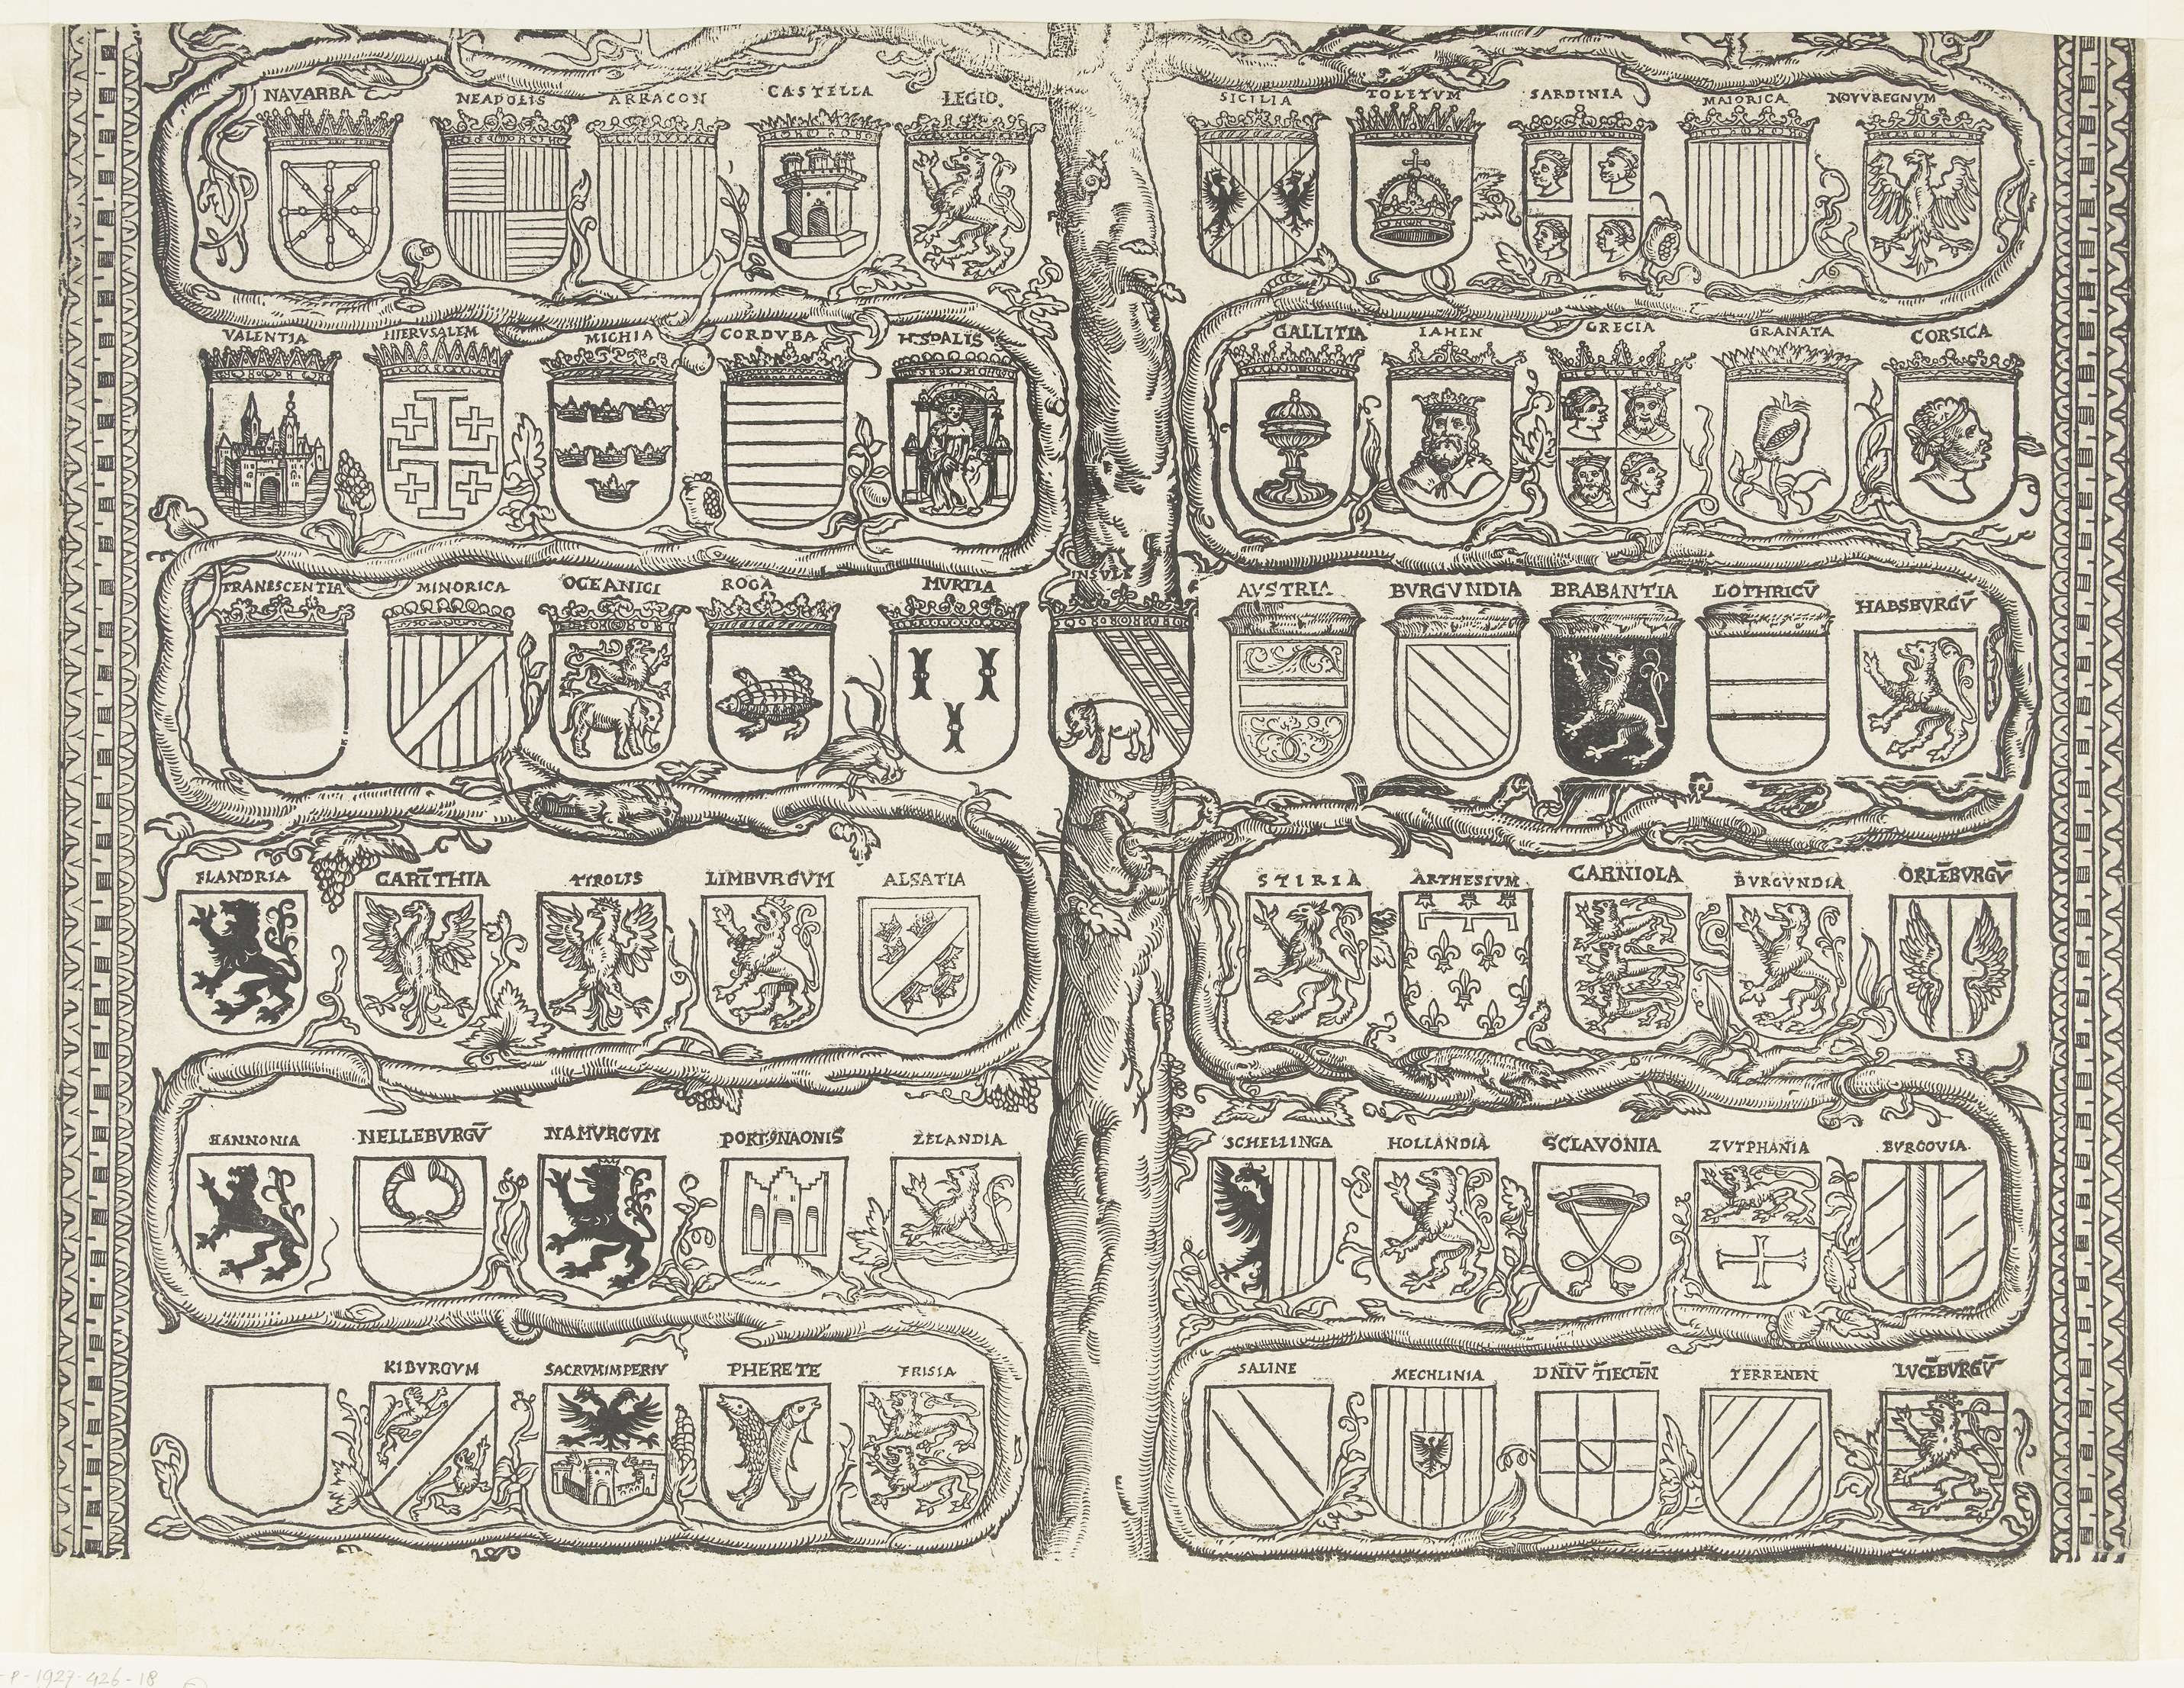 NAVARRA NEAPOLIS ARRAGON CASTELLA LEGIO. SICILIA TOLETVM SARDINIA MAIORICA NOVVREGNVM
VALENTIA HIERVSALEM MICHIA CORDVBA HISPALIS GALLITIA IAHEN GRECIA GRANATA CORSICA
TRANESCENTIA MINORICA OCEANICI ROGA MVRTIA INSVLE AVSTRIA BVRGVNDIA BRABANTIA LOTHRICV̄ HABSBVRGV̄
FLANDRIA CARĪTHIA TIROLIS LIMBVRGVM ALSATIA STIRIA ARTHESIVM CARNIOLA BVRGVNDIA ORLĒBVRGV̄
HANNONIA NELLEBVRGV̄ NAMVRCVM PORTꝰNAONIS ZELANDIA SCHELLINGA HOLLANDIA SCLAVONIA ZVTPHANIA BVRGOVIA
KIBVRGVM SACRVMIMPERIV PHERETE FRISIA SALINE MECHLINIA DNIV̄ TIECTEN̄ TERRENEN LVCĒBVRGV̄
-P-1927-426-18